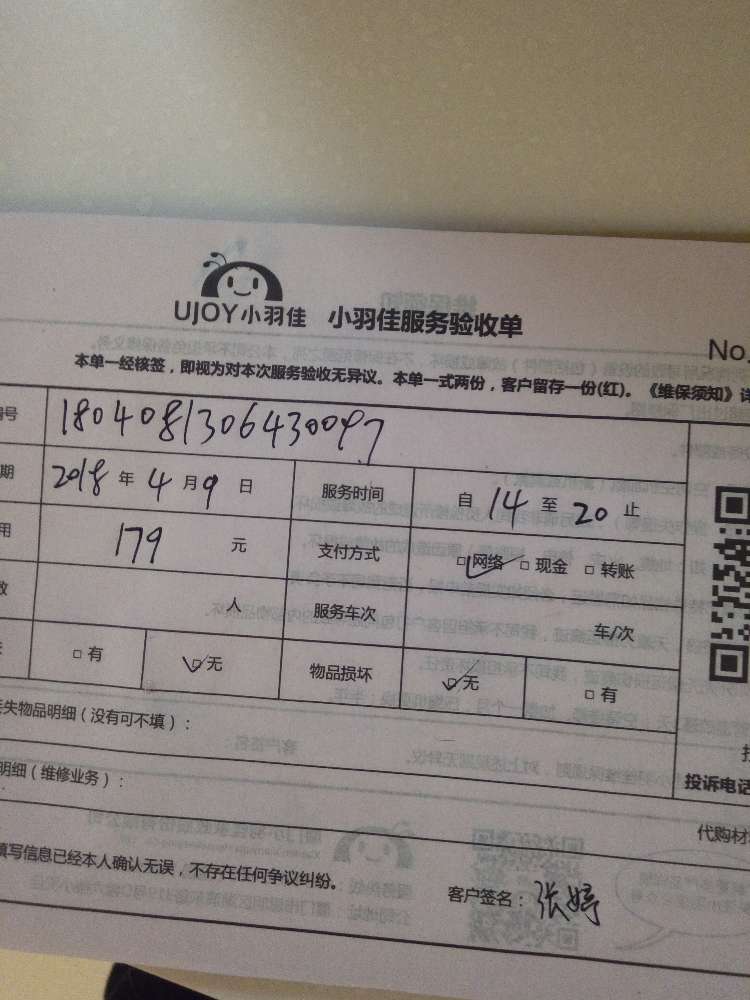 UJOY小羽佳 小羽佳服务验收单
No.
本单一经核签，即视为对本次服务验收无异议。本单一式两份，客户留存一份(红)。《维保须知》详
号 1804081306430097
期 2018 年 4 月 9 日 服务时间 自 14 至 20 止
用 179 元 支付方式 ☑网络 □现金 □转账
数 人 服务车次 车/次
□有 ☑无 物品损坏 ☑无 □有
失物品明细（没有可不填）：
明细（维修业务）：
投诉电话
代购材
填写信息已经本人确认无误，不存在任何争议纠纷。
客户签名：张婷